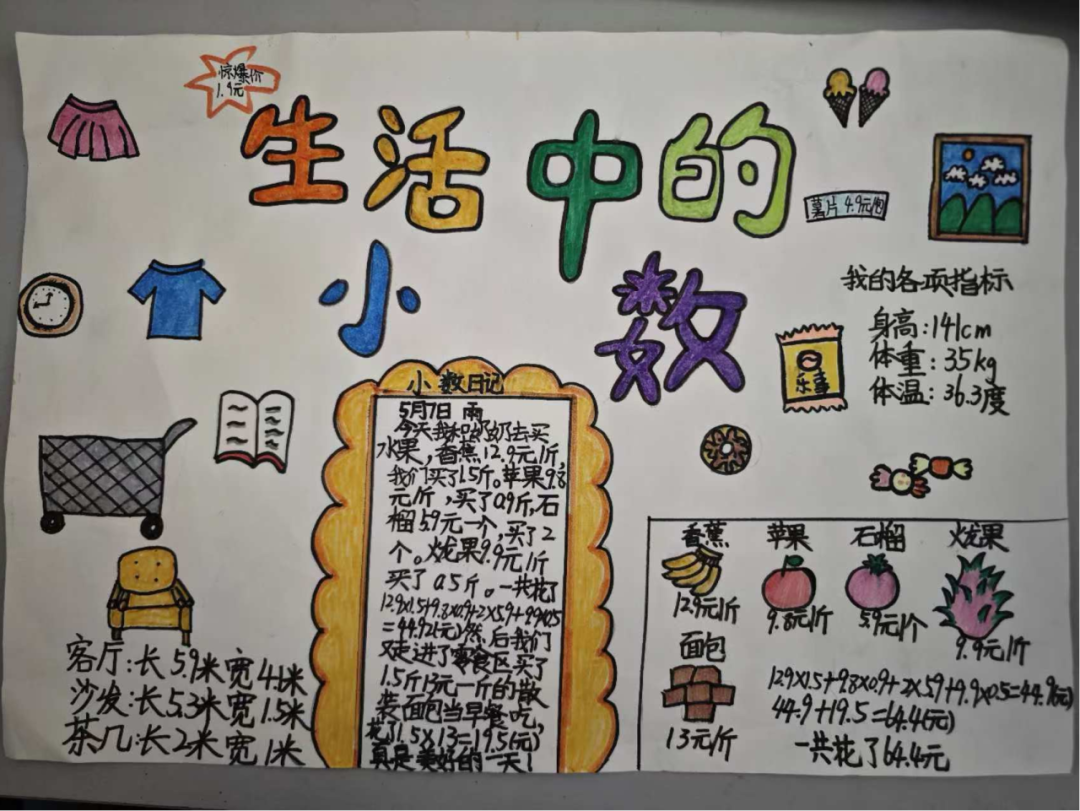 惊爆价
1.9元
生活中的
小数
薯片 4.9元/包
我的各项指标
身高:141cm
体重:35kg
体温:36.3度
乐事
小数日记
5月7日 雨
今天我和奶奶去买
水果,香蕉12.9元/斤,
我们买了1.5斤。苹果9.8
元/斤,买了0.9斤,石
榴5.9元一个,买了2
个。火龙果9.9元/斤
买了0.5斤。一共花了
12.9×1.5+9.8×0.9+2×5.9+9.9×0.5
=44.92(元)然后我们
又走进了零食区买了
1.5斤13元一斤的散
装面包当早餐吃,
花了1.5×13=19.5(元)
真是美好的一天!
客厅:长5.9米宽4.1米
沙发:长5.3米宽1.5米
茶几:长2米宽1米
香蕉 苹果 石榴 火龙果
12.9元/斤 9.8元/斤 5.9元/个 9.9元/斤
面包
13元/斤
12.9×1.5+9.8×0.9+2×5.9+9.9×0.5=44.9(元)
44.9+19.5=64.4(元)
一共花了64.4元